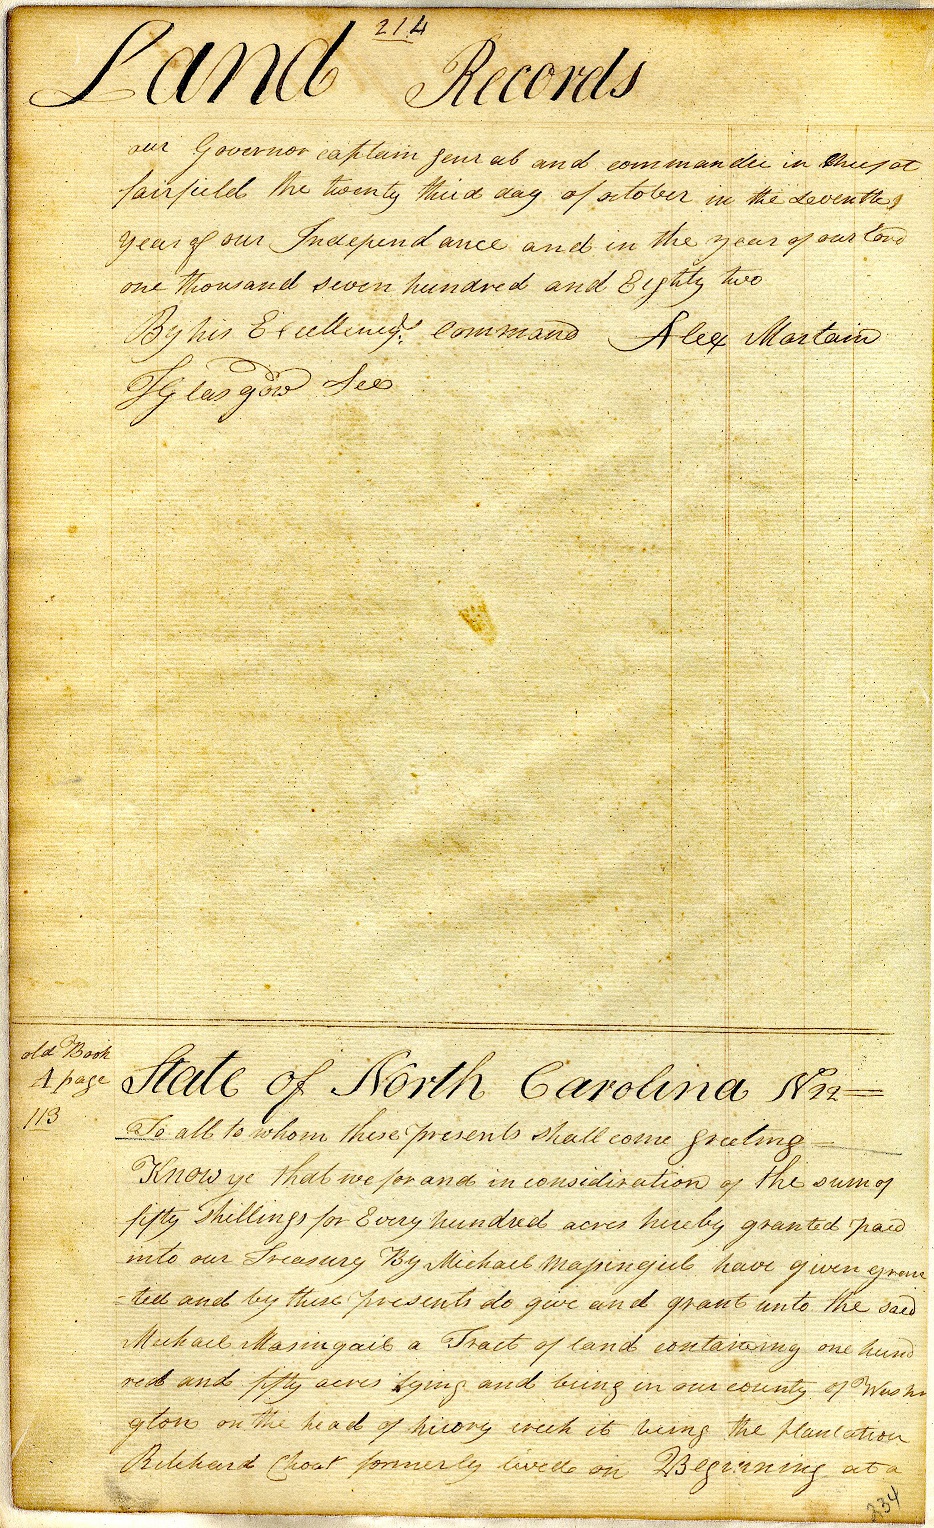 214
Land Records
our Governor captain genral and commander in cheef at
fairfield the twenty third day of october in the seventh
year of our Independance and in the year of our Lord
one thousand seven hundred and Eighty two
By his Excellencys command Alex Martain
J Glasgow Sec
old Book
A page
113
State of North Carolina No
To all to whom these presents shall come greeting
Know ye that we for and in consideration of the sum of
fifty Shillings for Every hundred acres hereby granted paid
into our Treasury By Michael have given gran
=ted and by these presents do give and grant unto the said
Michael Masingail a Tract of land containing one hund
red and fifty acres lying and being in our county of Washin
gton on the head of hicory creek it being the plantation
Richard Choat formerly lived on Beginning at a
334